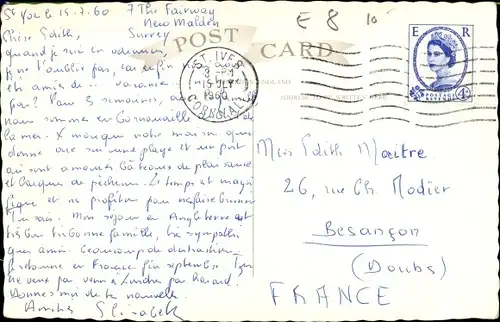 St Yves le 15.7.60
7 The Fairway
New Malden
Surrey
Chère Edith,
quand je suis en vacances, je
ne t'oublie pas, car enfin
et amie de vacances
pas? Pour 3 semaines,
nous sommes en Cornouaille
de la mer. X marque notre maison qui
donne sur une plage et un port
où sont amarrés bâteaux de plaisance
et barques de pêcheurs. Le temps est magni
fique et je profite pour me faire bronzer
Mon séjour en Angleterre est
très bonne famille, très sympathi
que amie. Beaucoup de distractions
en France fin septembre.
ne veux pas venir à Londres par hasard.
Donnes moi de tes nouvelles.
Amitiés Elisabeth
POST CARD
ENGLAND
ADDRESS
E 8 10
ST. IVES
15 JLY
1960
CORNWALL
E R
POSTAGE
REVENUE
4D
Miss Edith Maitre
26, rue Ch. Nodier
Besançon
(Doubs)
FRANCE